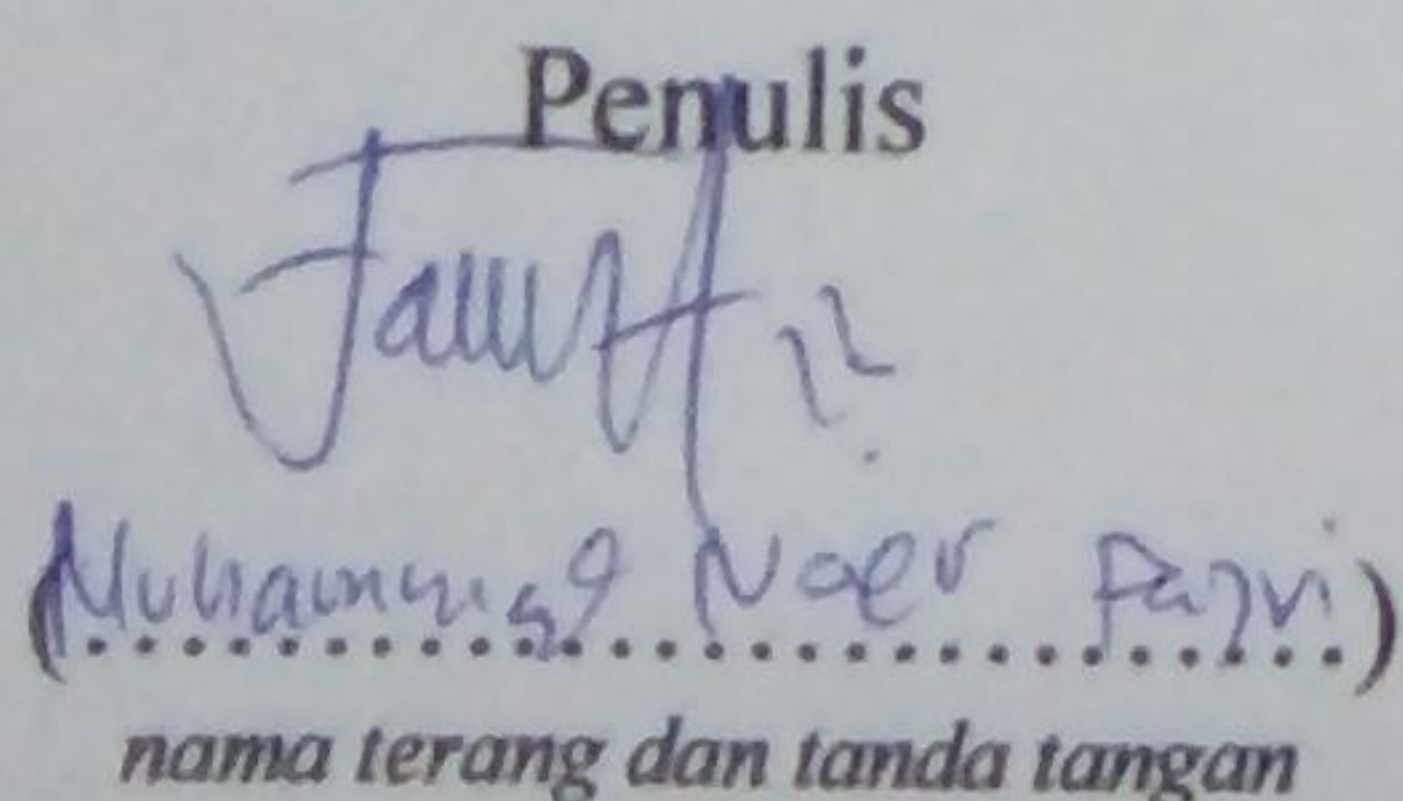 Penulis
(Muhammad Noer Fajri)
nama terang dan tanda tangan